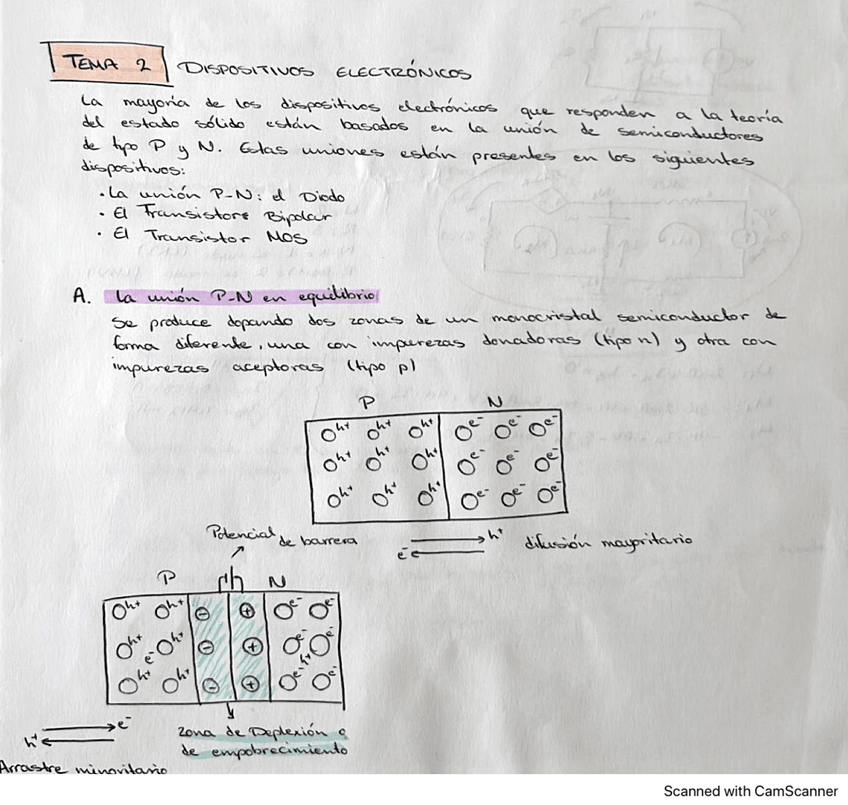 TEMA 2 DISPOSITIVOS ELECTRÓNICOS
La mayoría de los dispositivos electrónicos que responden a la teoría
del estado sólido están basados en la unión de semiconductores
de tipo P y N. Estas uniones están presentes en los siguientes
dispositivos:
· La unión P-N: el Diodo
· El Transistore Bipolar
· El Transistor MOS
A. La unión P-N en equilibrio
Se produce dopando dos zonas de un monocristal semiconductor de
forma diferente, una con impurezas donadoras (tipo n) y otra con
impurezas aceptoras (tipo p)
P N
h+ h+ h+ e- e- e-
h+ h+ h+ e- e- e-
h+ h+ h+ e- e- e-
h+
e- difusión mayoritario
Potencial de barrera
P N
h+ h+ - + e- e-
h+ e- h+ - + e- h+ e-
h+ h+ - + e- e-
e-
h+
Arrastre minoritario
zona de Deplexión o
de empobrecimiento
Scanned with CamScanner